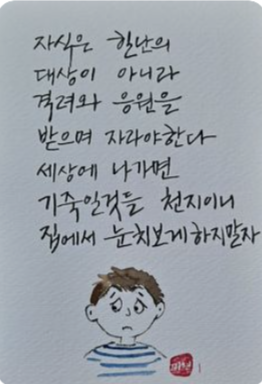 자식은 힐난의
대상이 아니라
격려와 응원을
받으며 자라야한다
세상에 나가면
기죽일것들 천지이니
집에서 눈치보게하지말자